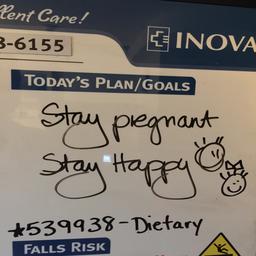 llent Care!
3-6155
INOVA
TODAY'S PLAN/GOALS
Stay pregnant
Stay Happy
*539938-Dietary
FALLS RISK